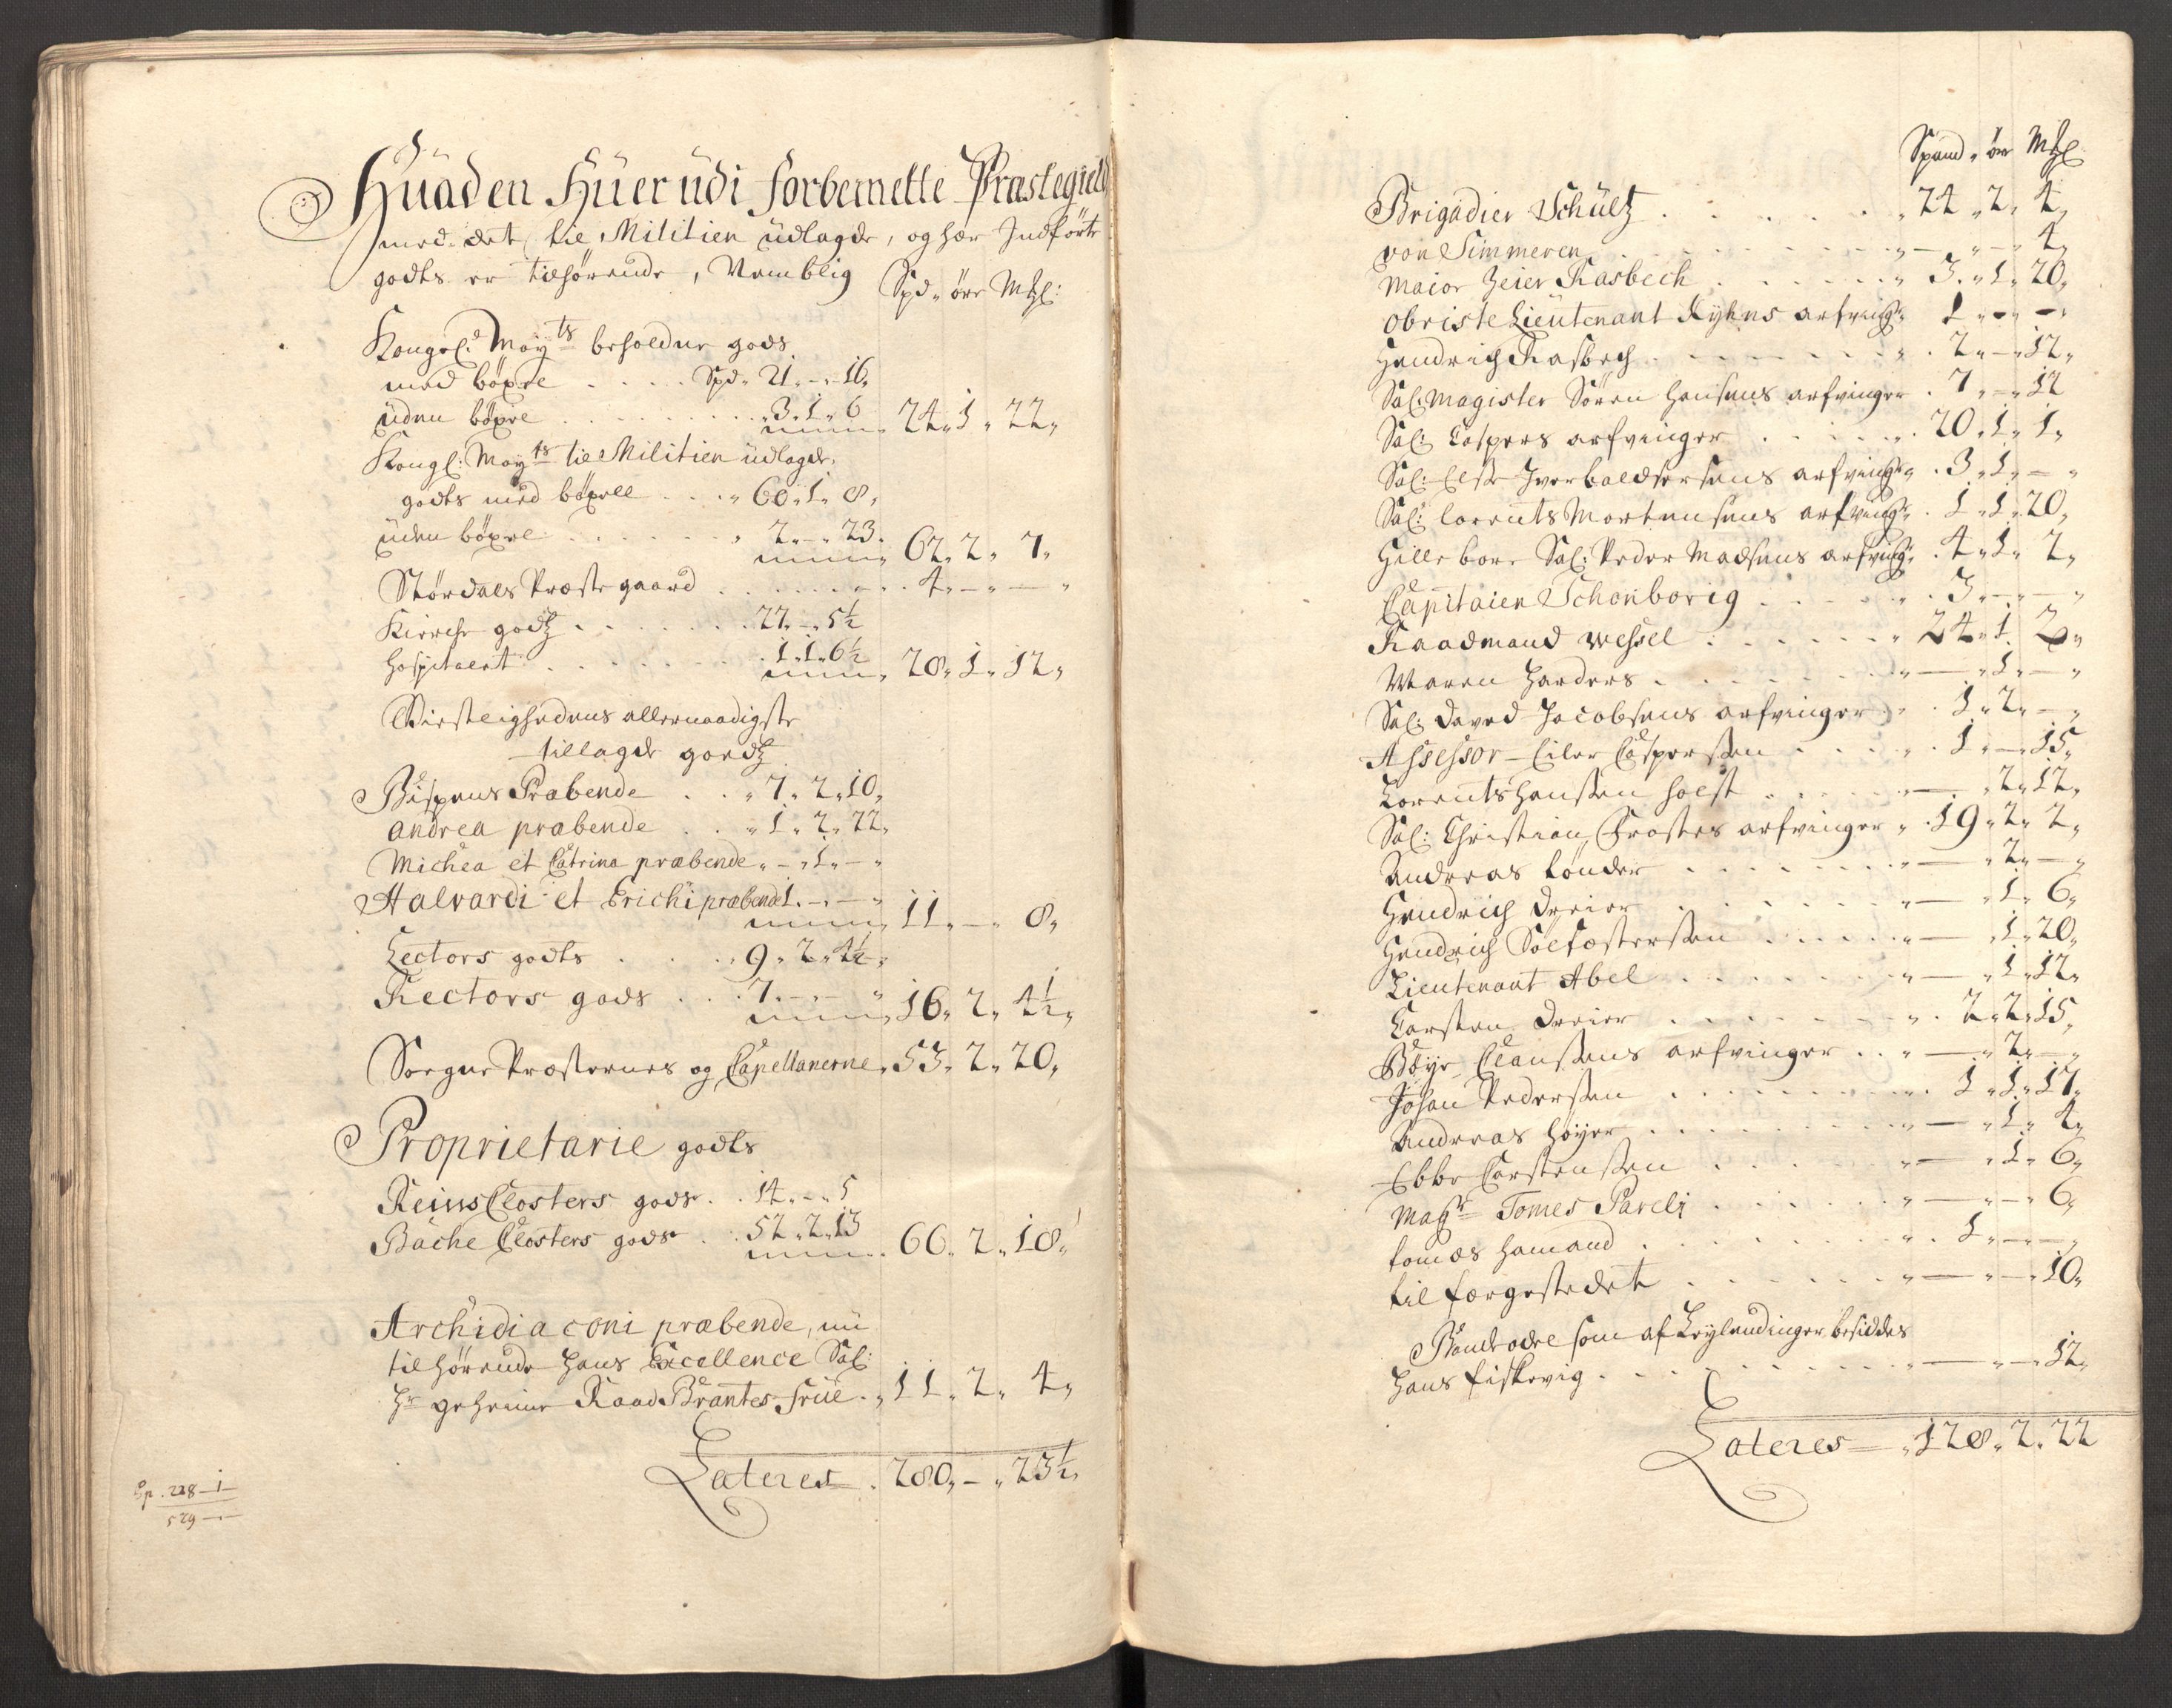 Huaden Huer udi forbemelte Præstegield
med det til Militien udlagde, og her Indførte
godts er tilhørende, Nemblig Spd. öre Mkl:
Kongel: Mayts beholdne gods
med böxle . . . . Spd. 21. - . 16.
uden böxle . . . . 3. 1. 6 24. 1. 22.
Kongl: Mayts til Militien udlagde
godts med böxell . . . 60. 1. 8.
uden böxel . . . . 2. - . 23. 62. 2. 7.
Størdals Præstegaard . . . . 4. - . -
Kirche godtz . . . . 27. - . 5½
hospitalet . . . . 1. 1. 6½ 28. 1. 12.
Giestlighedens allernaadigste
tillagde godtz
Bispens Præbende . . 7. 2. 10.
andrea præbende . . 1. 2. 22.
Michea et Catrina præbende . - . 1. -
Halvardi et Erichi præbende 1. - . - 11. - . 8.
Lectors godts . . . 9. 2. 4½.
Rectors gods . . . 7. - . - 16. 2. 4½.
Sogne Præsternes og Capellanerne . 53. 2. 20.
Proprietarie godts
Reins Closters gods . . 14. - . 5
Bache Closters gods . . 52. 2. 13 66. 2. 18.
Archidiaconi præbende, nu
tilhørende hans Excellence Sal:
Hr geheime Raad Brantes frue . 11. 2. 4.
Lateres . 280. - . 23½.
Sp. 228 - 1 -
529 - -
Spand . öre Mkl
Brigadier Schultz . . . . 22. 2. 4.
von Simmeren . . . . - . - . 4.
Maior Zeier Kasbech . . . . 3. 1. 20.
Obriste Lieutenant Kyhns arfving: 1. - . -
Hendrich Kasbech . . . . 2. - . 12.
Sal: Magister Sören Hansens arfvinger . 7. - . 12
Sal: Caspers arfvinger . . . . 20. 1. 1.
Sal: Else Iver baldsersens arfving: . 3. 1. -
Sal: lorents Mortensens arfving: . 1. 1. 20.
Hilleborr Sal: Peder Madsens arfving: . 4. 1. 2.
Capitaien Schonborig . . . . 3. - . -
Raadmand Wessel . . . . 24. 1. 2.
Maren Harders . . . . - . 1. -
Sal: David Jacobsens arfvinger . 1. 2. -
Assessor Eiler Caspersen . . . . 1. - . 15.
Lorents hansen holst . . . . - . 2. 12.
Sal: Christian Frostes arfvinger . 19. 2. 2.
Andreas tönder . . . . - . 2. -
Hendrich Dreier . . . . - . 1. 6.
Hendrich Sölfæstersen . . . . - . 1. 20.
Lieutenant Abel . . . . - . 1. 12.
Carsten Dreier . . . . 2. 2. 15.
Böye Clausens arfvinger . . - . 2. -
Johan Pedersen . . . . 1. 1. 17.
Andreas höyer . . . . - . 1. 4.
Ebbe Carstensen . . . . - . 1. 6.
Magr Tomes Pareli . . . . - . - . 6.
tomas hamand . . . . 1. - . -
til færgestedet . . . . - . - . 10.
Bonde odel som af Leylendinger besiddes
Hans fiskvig . . . . - . - . 12.
Lateres . 128. 2. 22